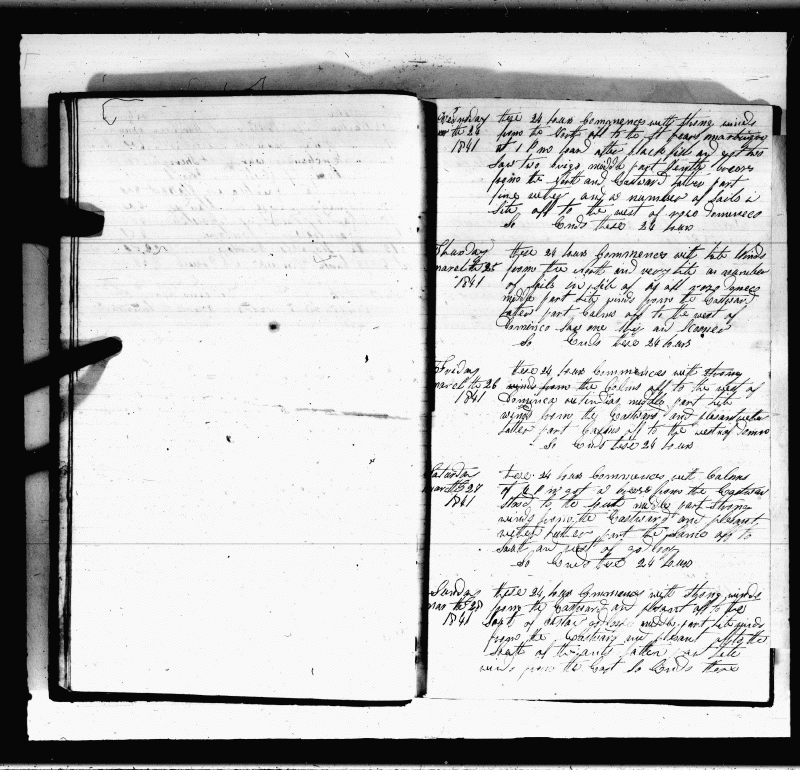 Wensday these 24 hour Commences with strong winds
march the 24 from the North off to the St
1841 at 1 P m lowerd after black fish and got two
saw two brigs middle part light breess
from the North and Eastward latter part
fine wether and a number of sails in
site off to the west of Domineco
So Ends these 24 hour
Thursday these 24 hour Commences with lite Winds
march the 25 from the North and very lite a number
1841 of sails in site of us off Domineco
middle part lite winds from the Eastward
latter part Calms off to the west of
Domineco saw one brig and Scooner
So Ends these 24 hours
Friday these 24 hour Commences with strong
march the 26 winds from the Calms off to the west of
1841 Dominica middle part lite
winds from the Eastward and plesant wether
latter part Calms off to the west of
So Ends these 24 hour
Saturday these 24 hour Commences with Calms
march the 27 at P m got a breese from the Eastward
1841 stood to the South middle part strong
winds from the Eastward and plesant
wether latter part the same off to
South and west of
So Ends these 24 hour
Sunday these 24 hour Commences with strong winds
march the 28 from the Eastward and plesant off to the
1841 of middle part lite winds
from the Eastward and plesant off to the
South of the latter part lite
winds from the East So Ends these